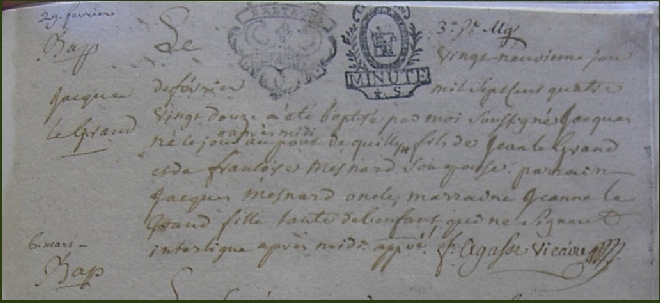 29. fevrier
Bap
Jacque
le Grand
3e. pr.
MINUTE
4. S.
Le Vingt neuvieme jour
de fevrier mil Sept Cent quatre
Vingt douze a été baptisé par moi Soussigné Jacques
après midi
né le jour au pont de fils de Jean le Grand
et de françoise Mesnard Son epouse. parrain
Jacques Mesnard oncle, marraine Jeanne le
Grand fille tante de l'enfant qui ne Signent
interligne après midi appr. f. Agasse Vicaire
6. mars
Bap